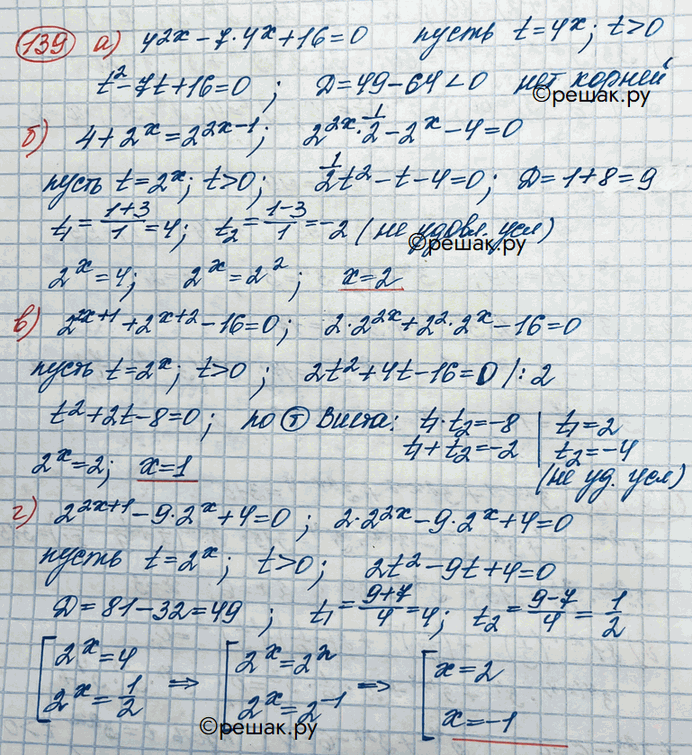 139 а) 4^2x − 7·4^x + 16 = 0 пусть t = 4^x; t > 0
t² − 7t + 16 = 0; D = 49 − 64 < 0 нет корней
©решак.ру
б) 4 + 2^x = 2^(2x−1); 2^2x · 1/2 − 2^x − 4 = 0
пусть t = 2^x; t > 0; 1/2 t² − t − 4 = 0; D = 1 + 8 = 9
t₁ = (1+3)/1 = 4; t₂ = (1−3)/1 = −2 (не удовл. усл)
©решак.ру
2^x = 4; 2^x = 2²; x = 2
в) 2^(2x+1) + 2^(x+2) − 16 = 0; 2·2^2x + 2²·2^x − 16 = 0
пусть t = 2^x; t > 0; 2t² + 4t − 16 = 0 |: 2
t² + 2t − 8 = 0; по Т Виета: t₁·t₂ = −8 | t₁ = 2
t₁ + t₂ = −2 | t₂ = −4
2^x = 2; x = 1 (не уд. усл)
г) 2^(2x+1) − 9·2^x + 4 = 0; 2·2^2x − 9·2^x + 4 = 0
пусть t = 2^x; t > 0; 2t² − 9t + 4 = 0
D = 81 − 32 = 49; t₁ = (9+7)/4 = 4; t₂ = (9−7)/4 = 1/2
[ 2^x = 4 ⇒ [ 2^x = 2² ⇒ [ x = 2
2^x = 1/2 2^x = 2^−1 x = −1
©решак.ру